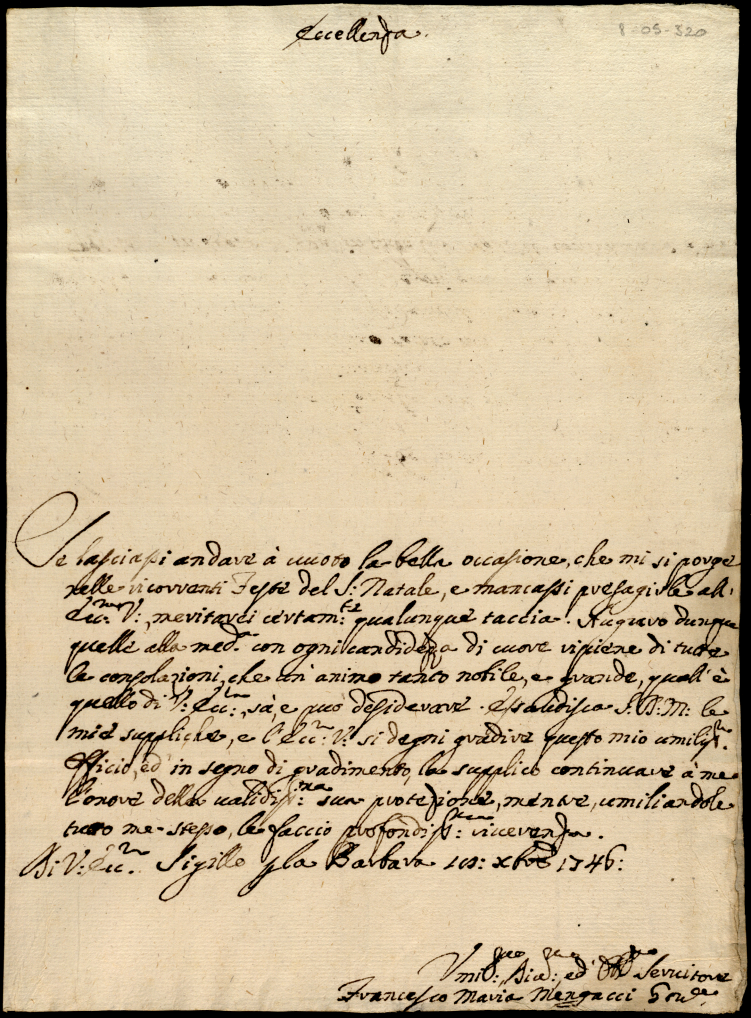 Eccellenza.
8-05-320
Se lasciassi andare à vuoto la bella occasione, che mi si porge
nelle ricorrenti Feste del S: Natale, e mancassi presagirle all'
Ecc: V:, meritarei certam:te qualunque taccia. Auguro dunque
quelle alla med. con ogni candidezza di cuore ripiene di tutte
le consolazioni, che un'animo tanto nobile, e grande, qual'è
quello di V: Ecc:, sà, e può desiderare. Essaudisca S. D. M: le
mie suppliche, e l'Ecc: V: si degni gradire questo mio umiliss.
officio, ed in segno di gradimento, la supplico continuare à me
l'onore della validiss:ma sua protezione, mentre, umiliandole
tutto me-stesso, le faccio profondiss: riverenza.
Di V: Ecc. Sigillo Barbara Xbre 1746:
Umil: ed Servitore
Francesco Maria Mengacci Gov.re